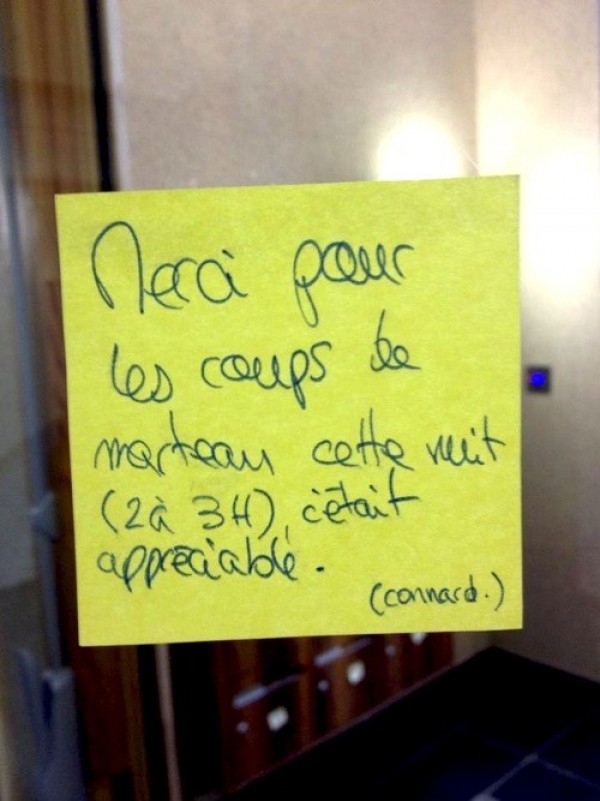 Merci pour
les coups de
marteau cette nuit
(2 à 3H), c'était
appréciable.
(connard.)